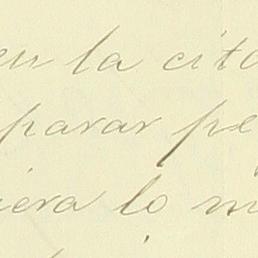 en la cita
parar pe
iera lo m